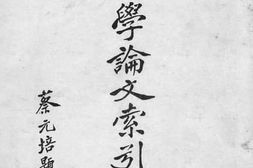 學論文索引
蔡元培題